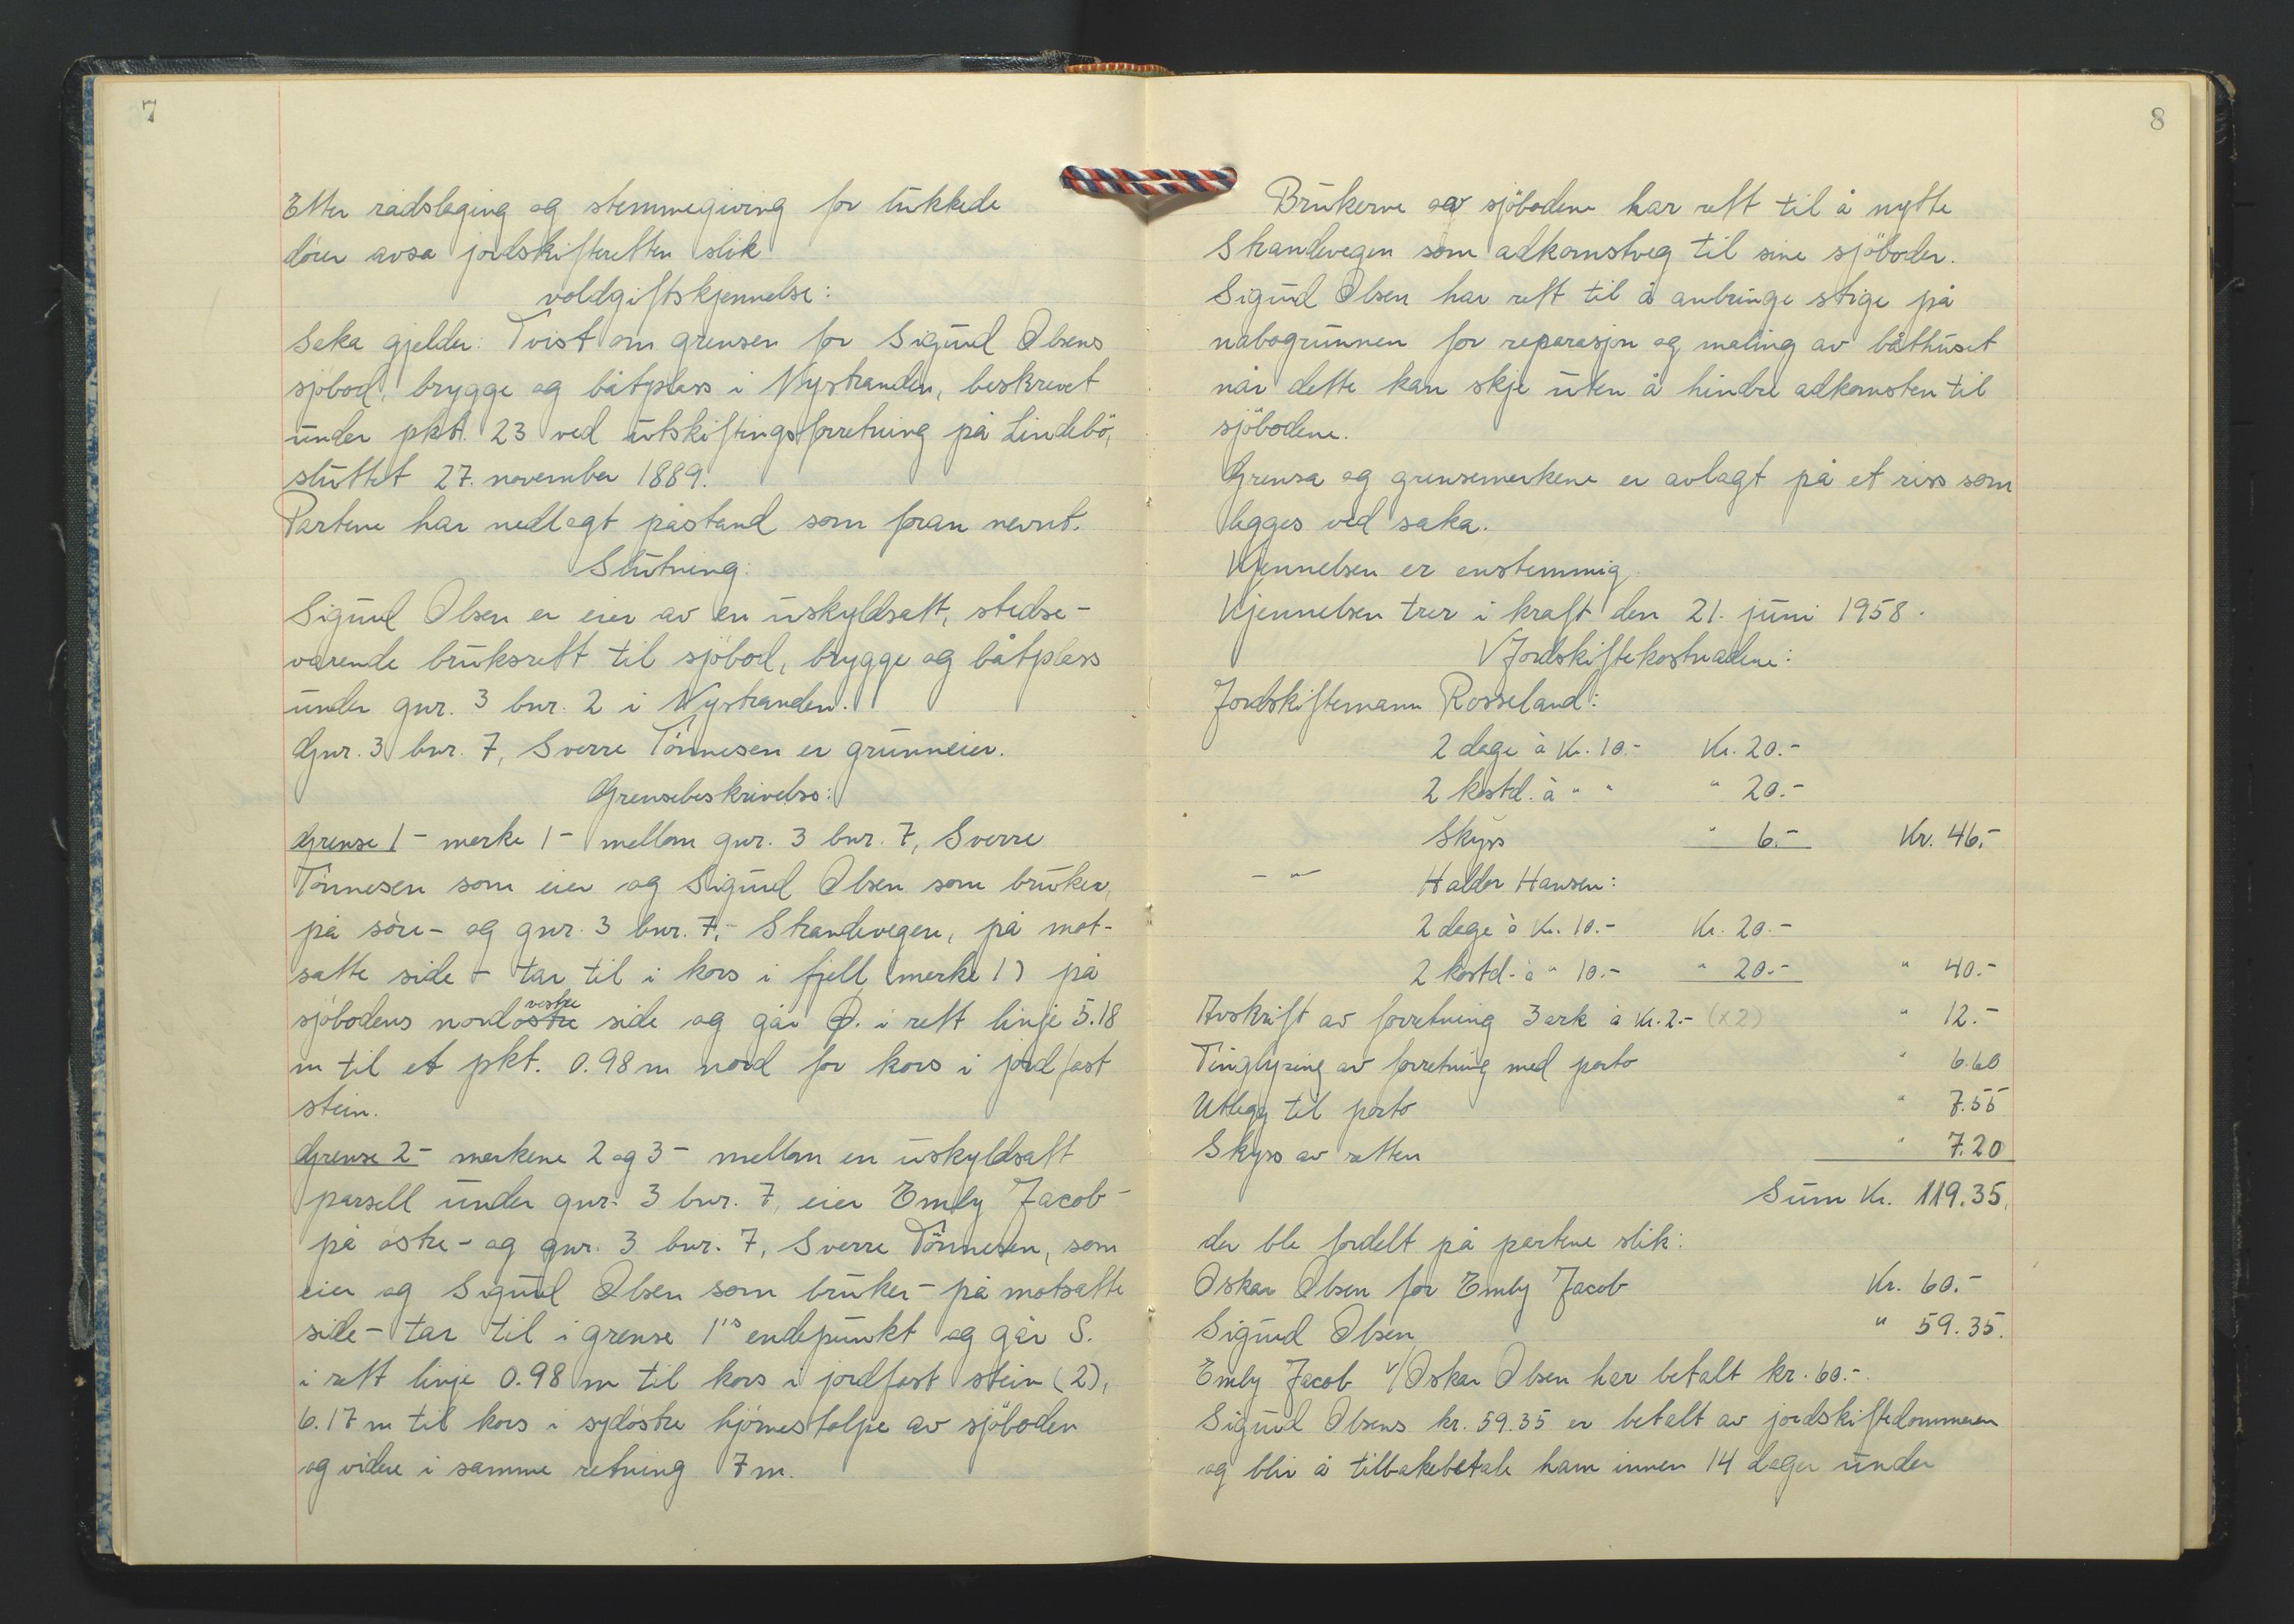 7
Etter rådslaging og stemmegiving for lukkede
dörer avsa jordskifteretten slik
voldgiftskjennelse:
Saka gjelder: Tvist om grensen for Sigurd Olsens
sjöbod, brygge og båtplass i Nystranden, beskrevet
under pkt. 23 ved utskiftingsforretning på Lindebö,
sluttet 27. november 1889.
Partene har nedlagt påstand som foran nevnt.
Slutning:
Sigurd Olsen er eier av en uskyldsatt, stedse-
varende bruksrett til sjöbod, brygge og båtplass
under gnr. 3 bnr. 2 i Nystranden.
Gnr. 3 bnr. 7, Sverre Tönnesen er grunneier.
Grensebeskrivelse:
Grense 1 - merke 1 - mellom gnr. 3 bnr. 7, Sverre
Tönnesen som eier og Sigurd Olsen som bruker,
på söre - og gnr. 3 bnr. 7, - Strandvegen, på mot-
satte side - tar til i kors i fjell (merke 1) på
sjöbodens nordöstre vestre side og går Ø. i rett linje 5.18
m til et pkt. 0.98 m nord for kors i jordfast
stein.
Grense 2 - merkene 2 og 3 - mellom en uskyldsatt
parsell under gnr. 3 bnr. 7, eier Emly Jacob -
på östre - og gnr. 3 bnr. 7, Sverre Tönnesen, som
eier og Sigurd Olsen som bruker - på motsatte
side - tar til i grense 1's endepunkt og går S.
i rett linje 0.98 m til kors i jordfast stein (2),
6.17 m til kors i sydöstre hjörnestolpe av sjöboden
og videre i samme retning 7 m.
8
Brukerne av sjöbodene har rett til å nytte
Strandevegen som adkomstveg til sine sjöboder.
Sigurd Olsen har rett til å anbringe stige på
nabogrunnen for reparasjon og maling av båthuset
når dette kan skje uten å hindre adkomsten til
sjöbodene.
Grensa og grensemerkene er avlagt på et riss som
legges ved saka.
Kjennelsen er enstemmig
Kjennelsen trer i kraft den 21. juni 1958.
V Jordskiftekostnadene:
Jordskiftemann Rosseland:
2 dage à Kr. 10.- Kr. 20.-
2 kostd. à " " " 20.-
Skyss " 6.- Kr. 46.-
- " - Haldor Hansen:
2 dage à Kr. 10.- Kr. 20.-
2 kostd. à " 10.- " 20.- " 40.-
Avskrift av forretning 3 ark à Kr. 2.- (x2) " 12.-
Tinglysing av forretning med porto " 6.60
Utlegg til porto " 7.55
Skyss av retten " 7.20
Sum Kr. 119.35.
der ble fordelt på partene slik:
Oskar Olsen for Emly Jacob Kr. 60.-
Sigurd Olsen " 59.35.
Emly Jacob v/Oskar Olsen har betalt kr. 60.-.
Sigurd Olsens kr. 59.35 er betalt av jordskiftedommeren
og blir å tilbakebetale ham innen 14 dager under